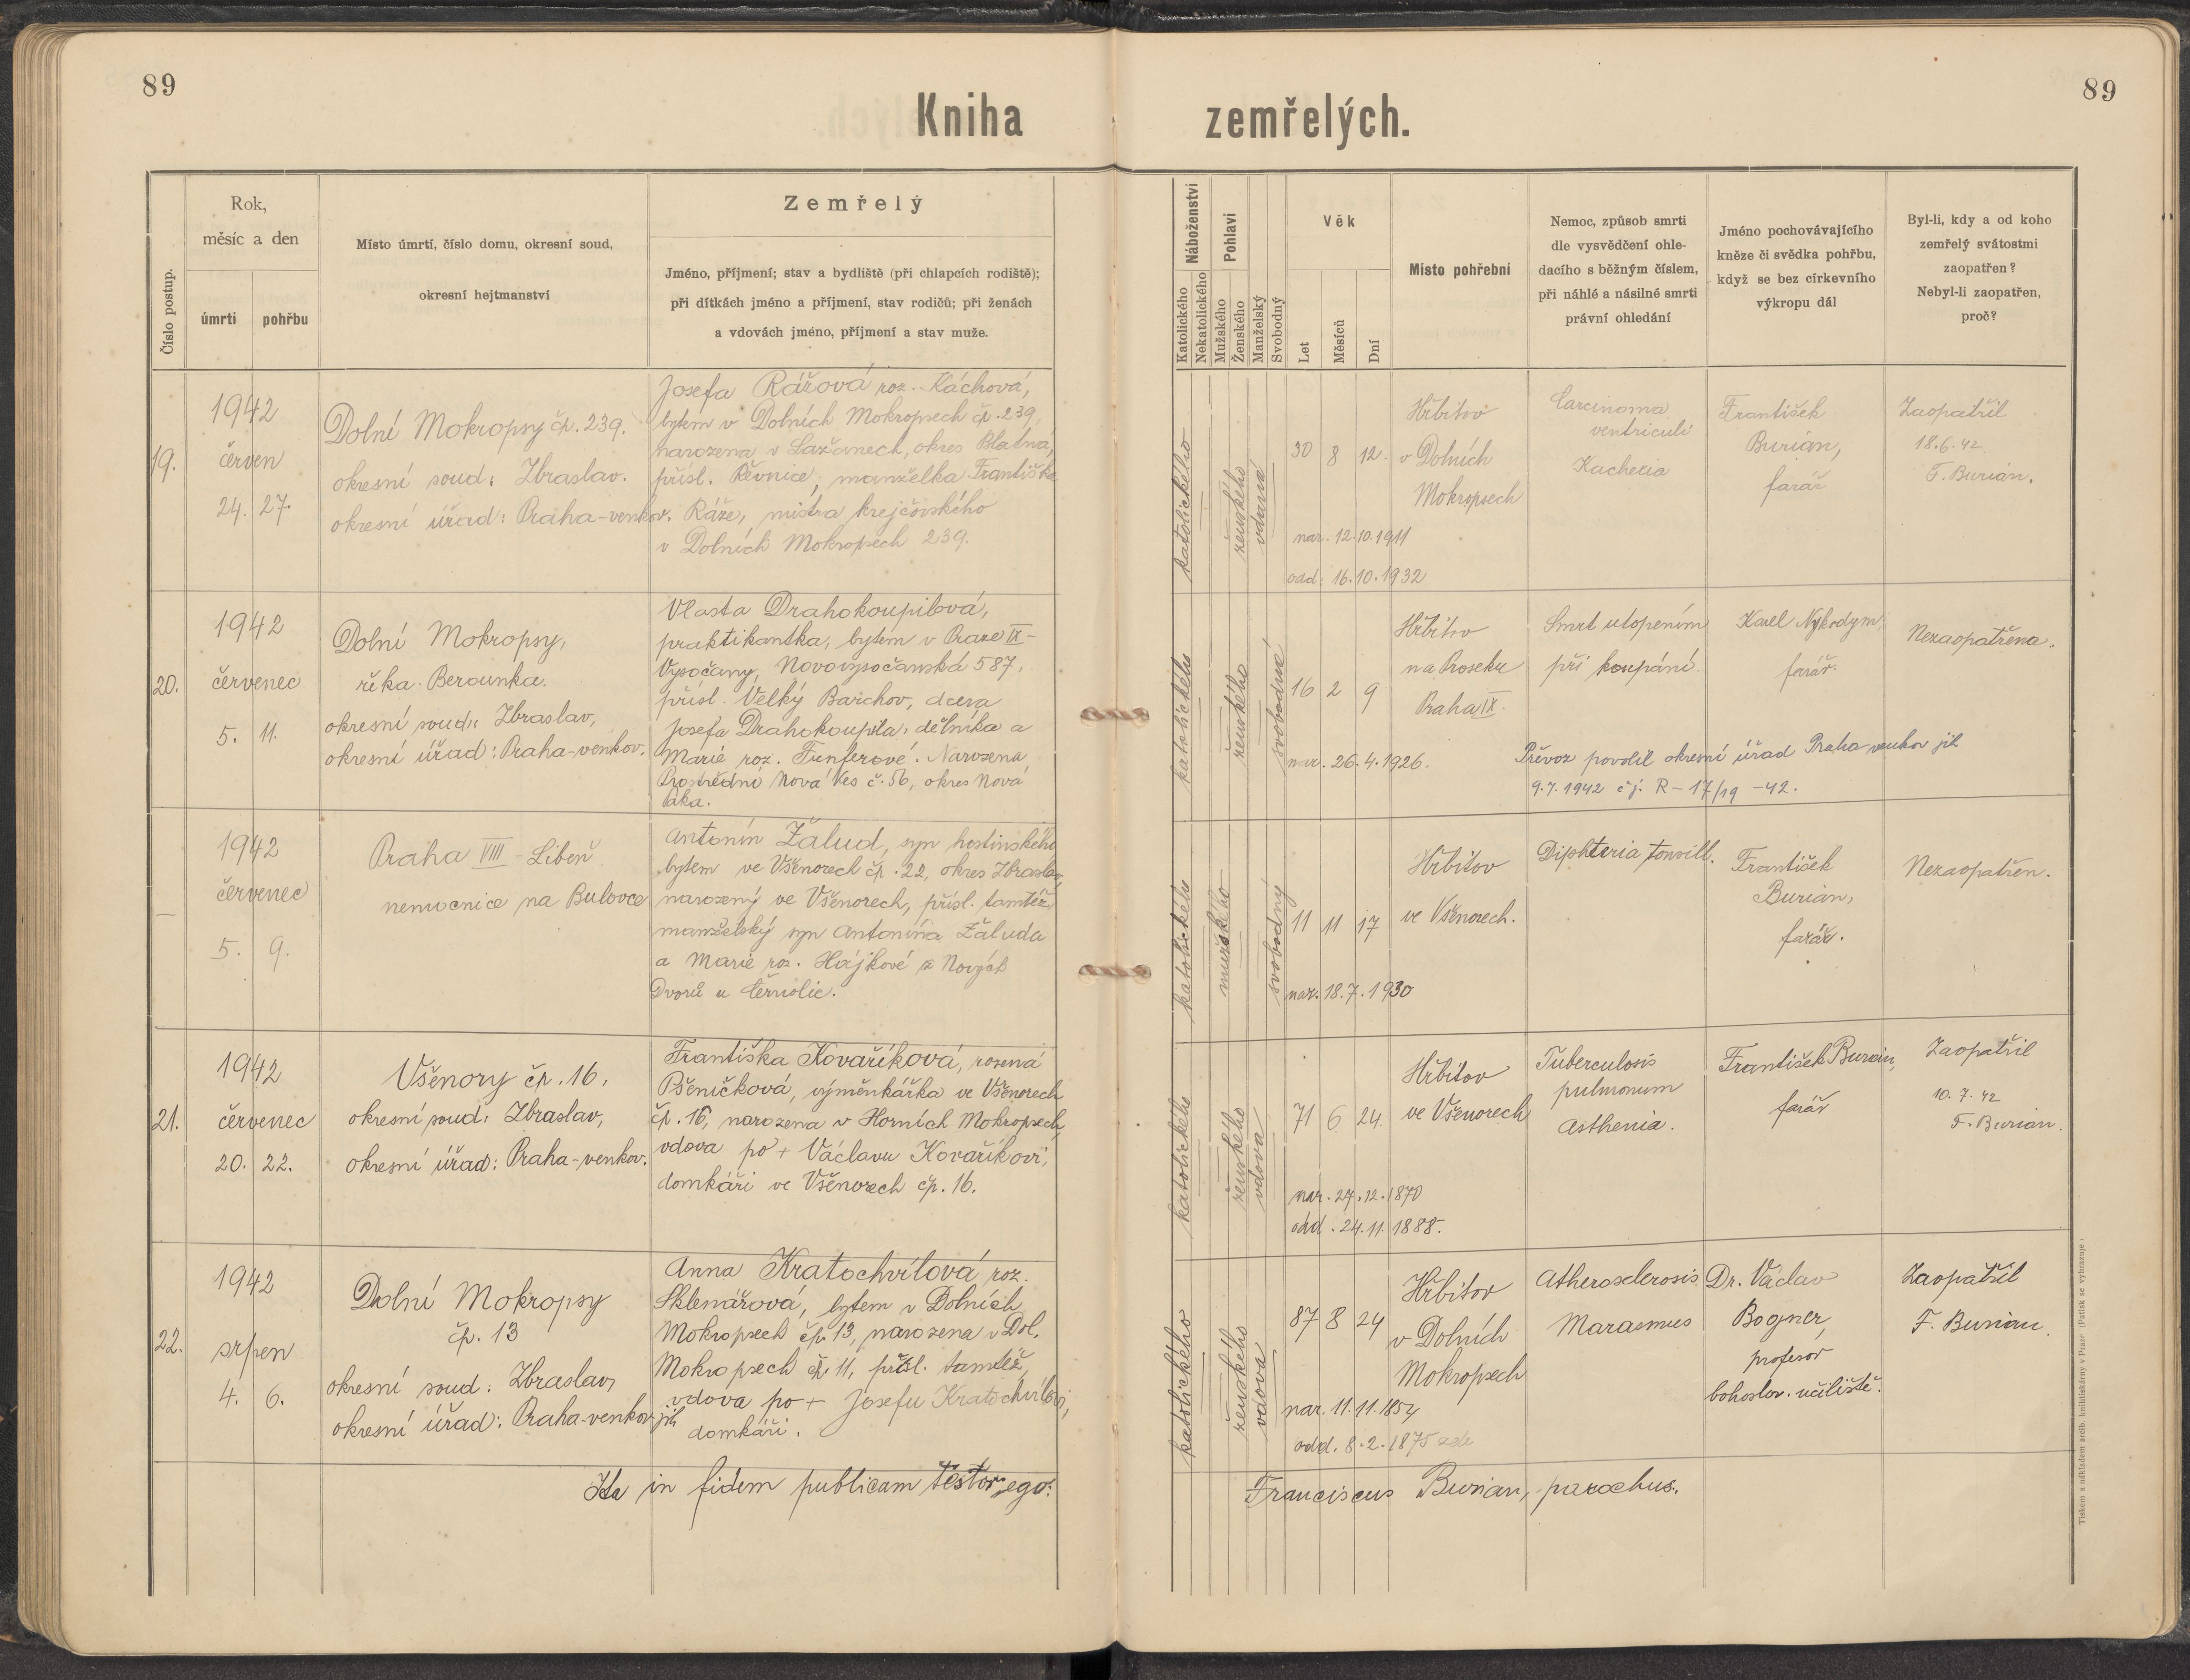 89
89
Kniha zemřelých.
Číslo postup.
Rok,
měsíc a den
úmrtí
pohřbu
Místo úmrtí, číslo domu, okresní soud,
okresní hejtmanství
Zemřelý
Jméno, příjmení; stav a bydliště (při chlapcích rodiště);
při dítkách jméno a příjmení, stav rodičů; při ženách
a vdovách jméno, příjmení a stav muže.
Náboženství
Katolického
Nekatolického
Pohlaví
Mužského
Ženského
Manželský
Svobodný
Věk
Let
Měsíců
Dní
Místo pohřební
Nemoc, způsob smrti
dle vysvědčení ohle-
dacího s běžným číslem,
při náhlé a násilné smrti
právní ohledání
Jméno pochovávajícího
kněze či svědka pohřbu,
když se bez církevního
výkropu dál
Byl-li, kdy a od koho
zemřelý svátostmi
zaopatřen?
Nebyl-li zaopatřen,
proč?
19.
1942
červen
24. 27.
Dolní Mokropsy čp. 239.
okresní soud: Zbraslav.
okresní úřad: Praha-venkov.
Josefa Rážová roz. Káchová,
bytem v Dolních Mokropsech čp. 239,
narozena v Lažanech, okres Blatná,
přísl. Řevnice, manželka Františka
Ráže, mistra krejčovského
v Dolních Mokropsech 239.
katolického
ženského
vdaná
30 8 12.
nar. 12.10.1911
odd. 16.10.1932
Hřbitov
v Dolních
Mokropsech
Carcinoma
ventriculi
Kachexia
František
Burian,
farář
Zaopatřil
18.6.42.
F. Burian.
20.
1942
červenec
5. 11.
Dolní Mokropsy,
řeka Berounka.
okresní soud: Zbraslav,
okresní úřad: Praha-venkov.
Vlasta Drahokoupilová,
praktikantka, bytem v Praze IX-
Vysočany, Novovysočanská 587,
přísl. Velký Barchov, dcera
Josefa Drahokoupila, dělníka a
Marie roz. Funferové. Narozena
Prostřední Nová Ves č. 56, okres Nová
Paka.
katolického
ženského
svobodná
16 2 9
nar. 26.4.1926.
Hřbitov
na Proseku
Praha IX.
Smrt utopením
při koupání.
Karel Nykodym,
farář.
Nezaopatřena.
Převoz povolil okresní úřad Praha venkov jih
9.7.1942 čj. R-17/19 -42.
—
1942
červenec
5. 9.
Praha VIII - Libeň
nemocnice na Bulovce
Antonín Žalud, syn hostinského
bytem ve Všenorech čp. 22, okres Zbraslav,
narozený ve Všenorech, přísl. tamtéž
manželský syn Antonína Žaluda
a Marie roz. Hájkové z Nových
Dvorů u Černolic.
katolického
mužského
svobodný
11 11 17
nar. 18.7.1930
Hřbitov
ve Všenorech.
Diphteria tonsill.
František
Burian,
farář.
Nezaopatřen.
21.
1942
červenec
20. 22.
Všenory čp. 16,
okresní soud: Zbraslav,
okresní úřad: Praha-venkov.
Františka Kovaříková, rozená
Pšeničková, výměnkářka ve Všenorech
čp. 16, narozena v Horních Mokropsech,
vdova po + Václavu Kovaříkovi,
domkáři ve Všenorech čp. 16.
katolického
ženského
vdova
71 6 24.
nar. 27.12.1870
odd. 24.11.1888.
Hřbitov
ve Všenorech
Tuberculosis
pulmonum
Asthenia.
František Burian,
farář
Zaopatřil
10.7.42
F. Burian.
22.
1942
srpen
4. 6.
Dolní Mokropsy
čp. 13
okresní soud: Zbraslav,
okresní úřad: Praha-venkov jih
Anna Kratochvílová roz.
Sklenářová, bytem v Dolních
Mokropsech čp. 13, narozena v Dol.
Mokropsech čp. 11, přísl. tamtéž,
vdova po + Josefu Kratochvílovi,
domkáři.
katolického
ženského
vdova
87 8 24
nar. 11.11.1854
odd. 8.2.1875 zde
Hřbitov
v Dolních
Mokropsech
Atherosclerosis
Marasmus
Dr. Václav
Bogner,
profesor
bohoslov. učiliště.
Zaopatřil
F. Burian.
Ita in fidem publicam testor ego:
Franciscus Burian, parochus.
Tiskem a nákladem arcib. knihtiskárny v Praze (Patisk se vyhrazuje)